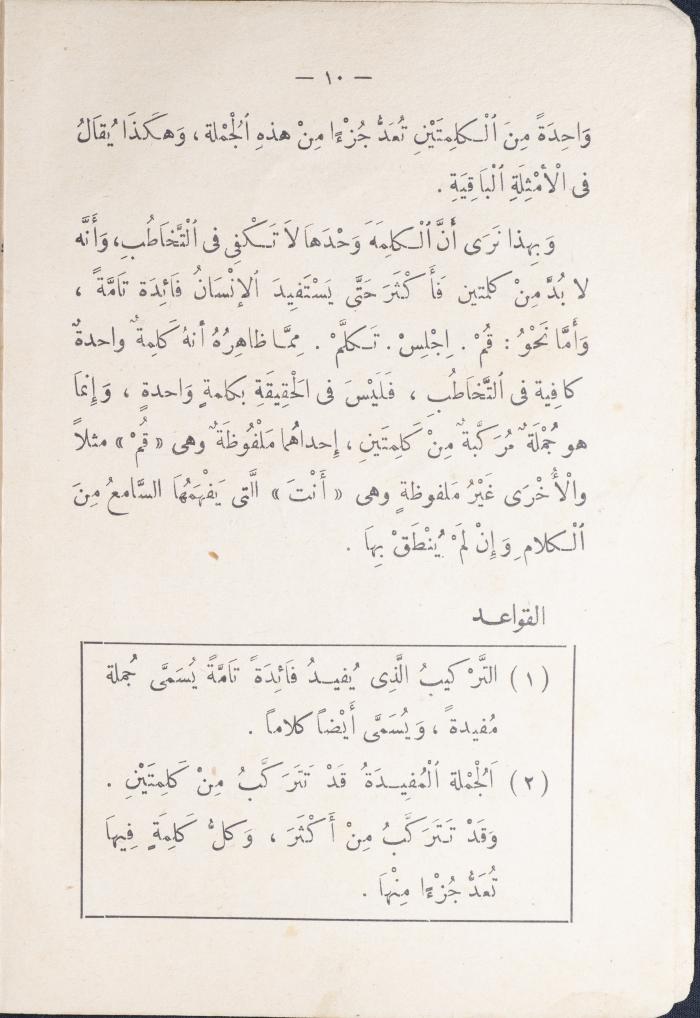 — ١٠ —
وَاحِدَةً مِنَ ٱلْكلِمتَيْنِ تُعَدُّ جُزْءًا مِنْ هذهِ ٱلْجُمْلة ، وَهكَذَا يُقالُ
فى ٱلْأَمْثِلَةِ ٱلْبَاقِيَةِ .
وَبِهذا نَرَى أَنَّ ٱلْكلِمَةَ وَحْدَهاَ لاَ تَكْفِى فى ٱلتَّخَاطُبِ، وَأَنَّه
لا بُدَّ مِنْ كلمتين فَأَكْثَرَ حَتَّى يَسْتَفِيدَ ٱلإنْسَانُ فَائِدَة تامَّةً ،
وَأَمَّا نَحْوُ : قُمْ . اِجْلِسْ . تَكلَّمْ . مِمَّا ظاهِرُهُ أنهُ كَلِمةٌ واحدةٌ
كافِية فى ٱلتَّخَاطُبِ ، فَلَيْسَ فى الحَقِيقَةِ بكلمةٍ وَاحدةٍ ، وَإِنماَ
هو جُمْلَةٌ مُرَكَّبةٌ مِنْ كَلِمَتَينِ ، إِحداهُما مَلْفُوظَةٌ وهى « قُمْ » مثلاً
والْأُخْرَى غَيْرُ مَلفوظةٍ وهى « أَنْتَ » الَّتى يَفْهَمُهَا السَّامعُ مِنَ
ٱلْكلامِ وَإِنْ لَمْ يُنْطَقْ بِهاَ .
القواعد
(١) التَّرْكيبُ الَّذِى يُفيدُ فَائِدَةً تامَّةً يُسَمَّى جُملة
مُفيدةً ، وَيُسَمَّى أَيْضاً كلاماً .
(٢) اَلْجُمْلة ٱلْمُفِيدَةُ قَدْ تَتَرَكَّبُ مِنْ كَلِمَتَيْنِ .
وَقَدْ تَتَرَكَّبُ مِنْ أَكْثَرَ ، وَكلُّ كَلِمَةٍ فِيهاَ
تُعَدُّ جُزْءًا مِنْهاَ .